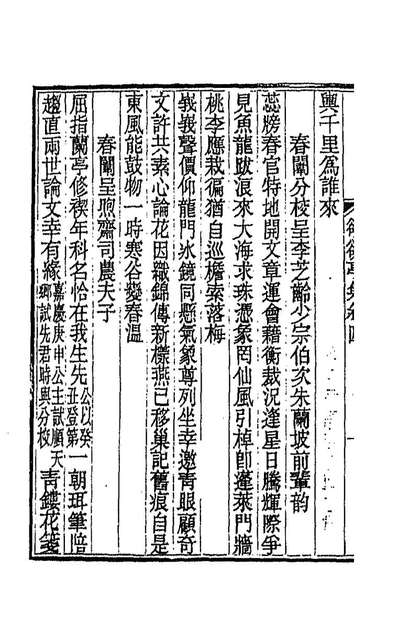 與千里為誰來
春闈分校呈李芝齡少宗伯次朱蘭坡前輩韻
蕊牓春官特地開文章運會藉衡裁況逢星日騰輝際爭
見魚龍跋浪來大海求珠憑象罔仙風引棹卽蓬萊門牆
桃李應栽徧猶自巡檐索落梅
峩峩聲價仰龍門冰鏡同懸氣象尊列坐幸邀青眼顧奇
文許共素心論花因織錦傳新樣燕已移巢記舊痕自是
東風能鼓物一時寒谷變春溫
春闈呈煦齋司農夫子
屈指蘭亭修禊年科名恰在我生先公以癸丑登第一朝珥筆陪
趨直兩世論文幸有緣嘉慶庚申公主試順天鄉試先君時與分校青鏤花箋